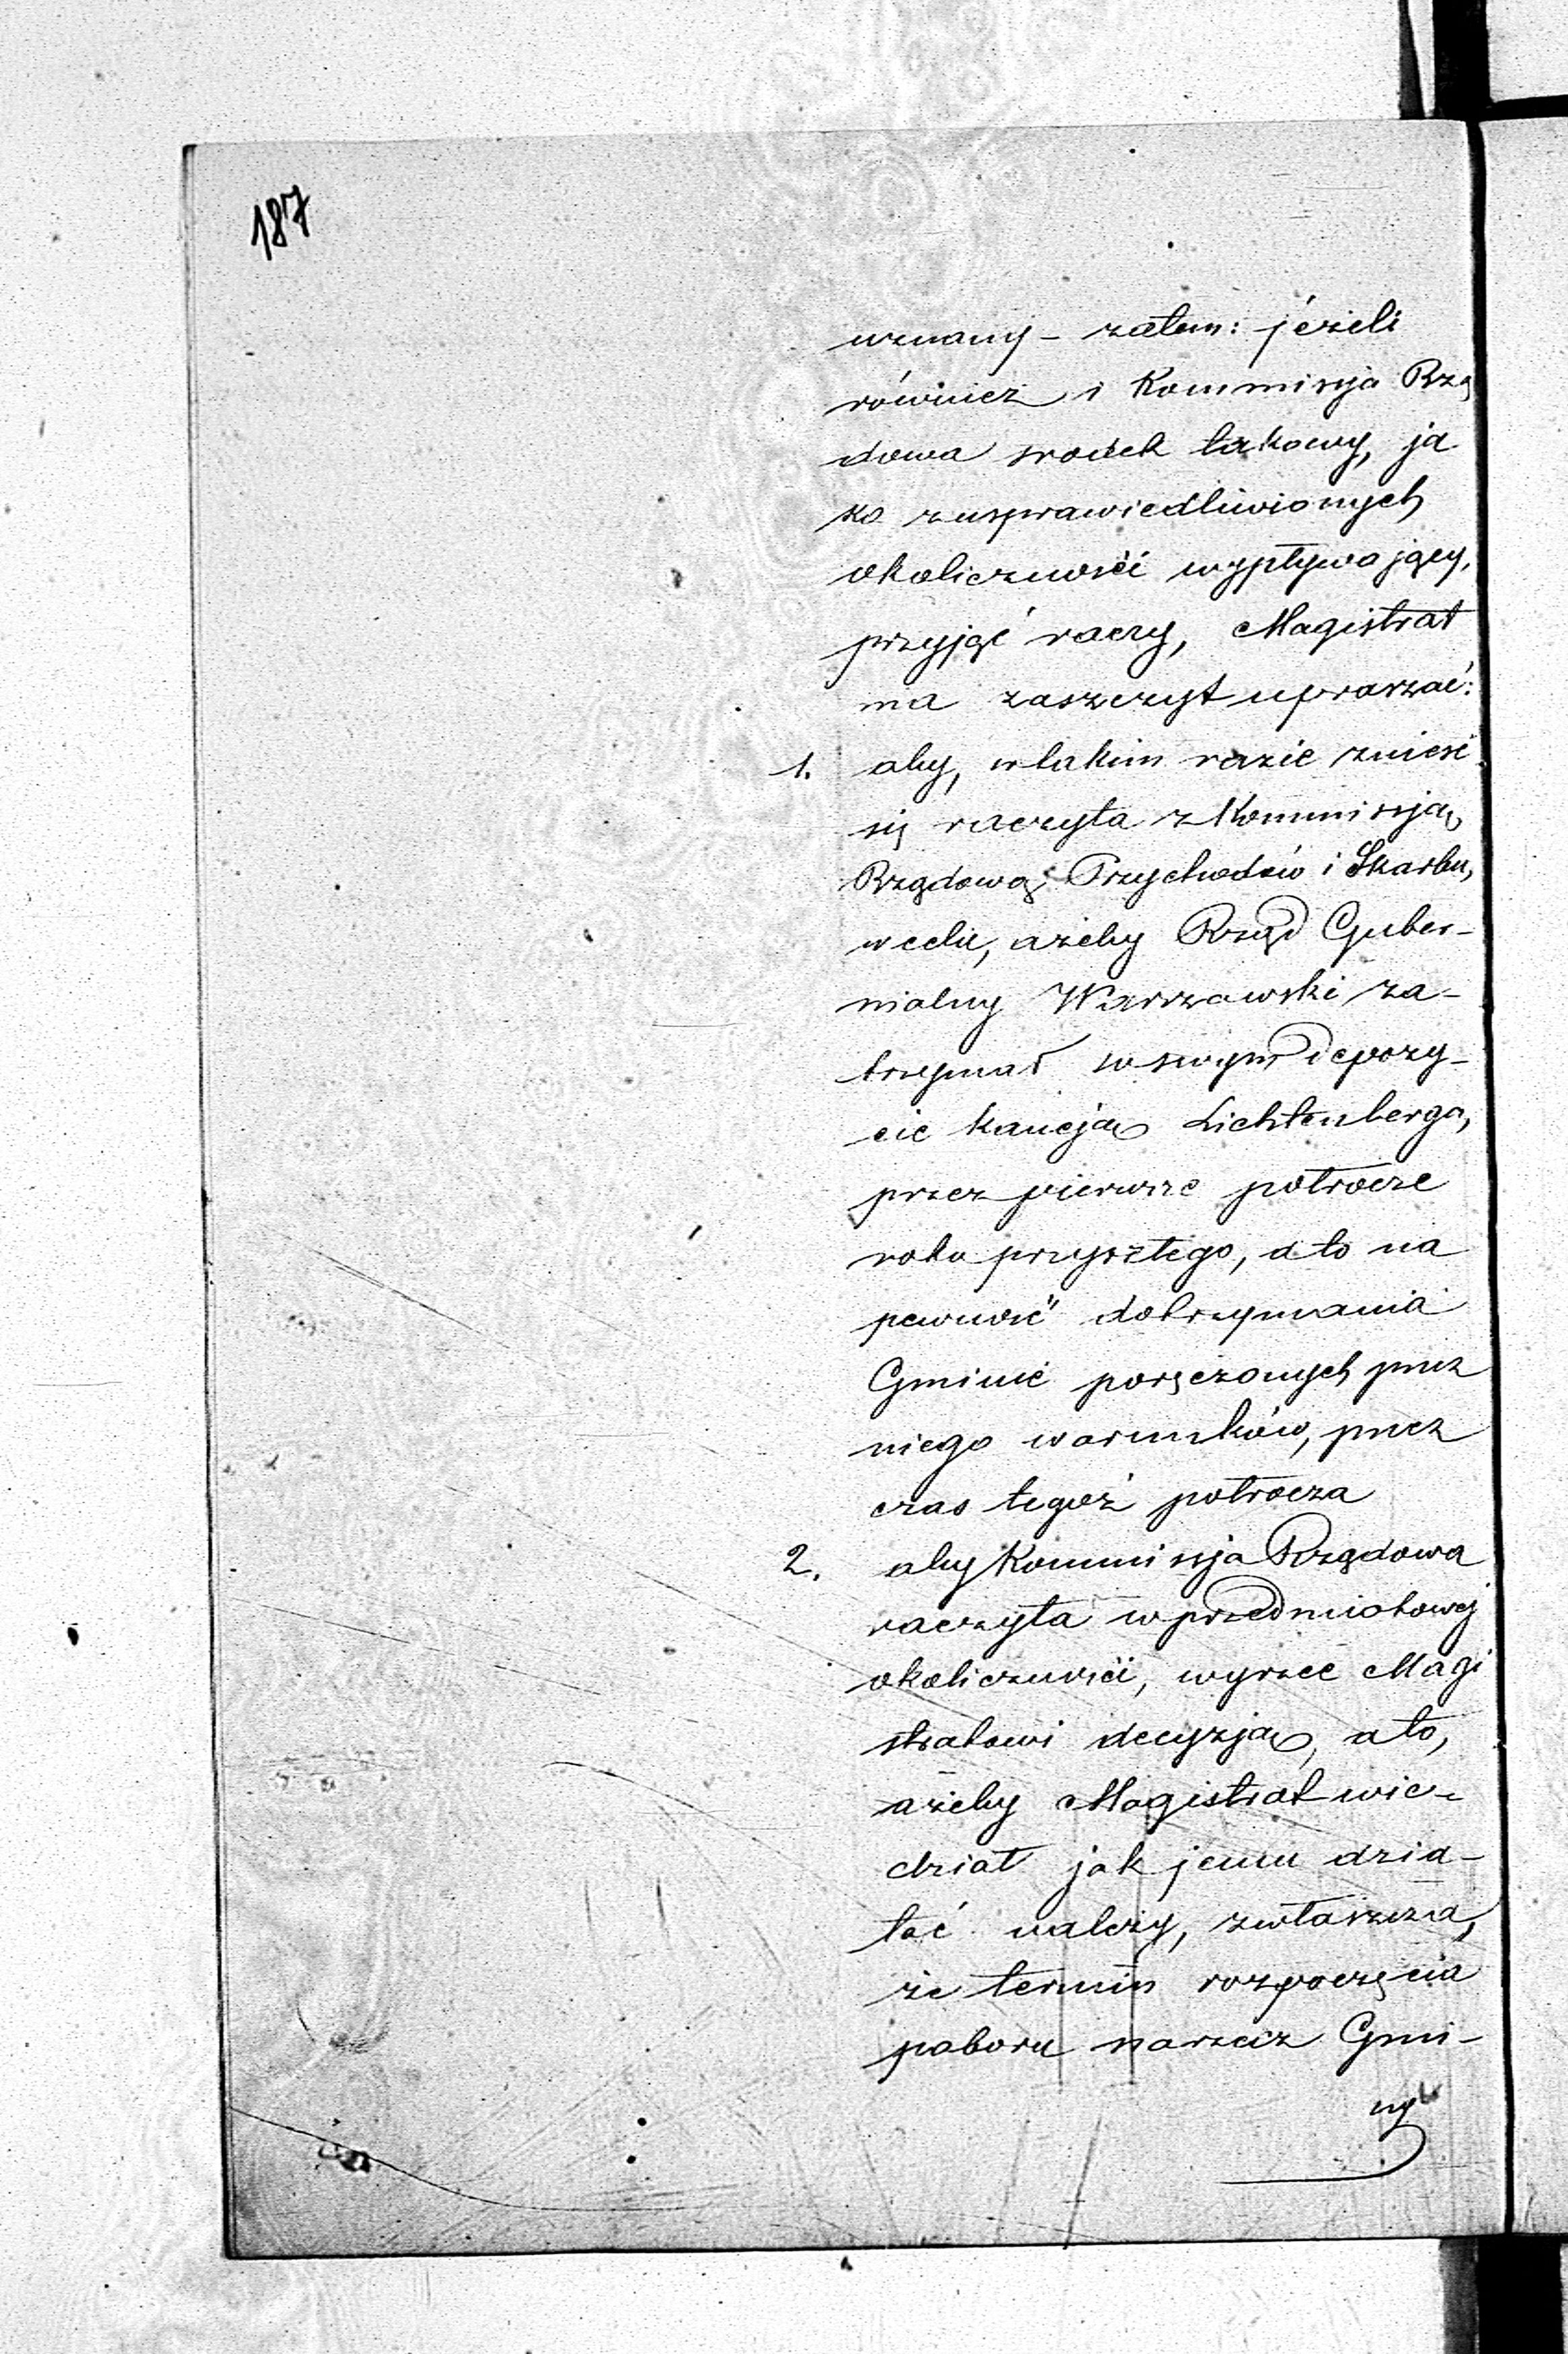 187
uznany – zatem: jeżeli
również i Kommissja Rzą
dowa srodek takowy, ja
ko z usprawiedliwionych
okoliczności wypływający,
przyjąć raczy, Magistrat
ma zaszczyt upraszać:
1. aby, w takim razie znieść
się raczyła z Kommissją
Rządową Przychodów i Skarbu,
w celu, ażeby Rząd Guber-
nialny Warszawski za-
trzymał w swym depozy-
cie kaucją Lichtenberga,
przez pierwsze półrocze
roku przyszłego, a to na
pewność dotrzymania
Gminie poręczonych przez
niego warunków, przez
czas tegoż półrocza
2. aby Kommissja Rządowa
raczyła w przedmiotowej
okoliczności, wyrzec Magi
stratowi decyzją, a to,
ażeby Magistrat wie-
dział jak jemu dzia-
łać należy, zwłaszcza,
że termin rozpoczęcia
poboru na rzecz Gmi-
ny